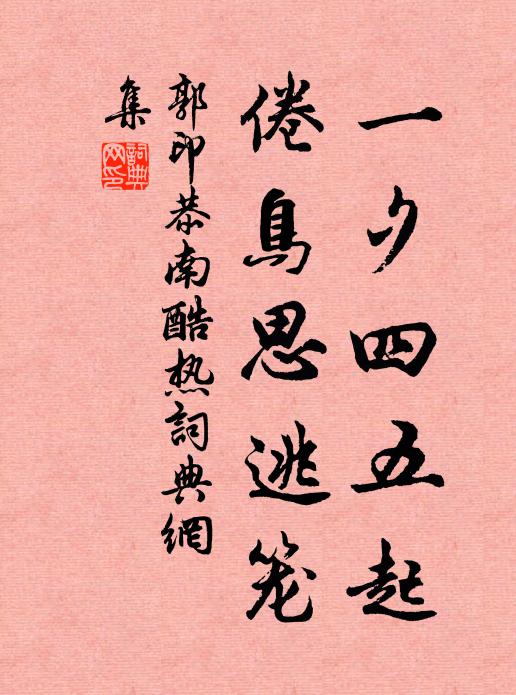 一夕四五起
倦鳥思逃笼
郭印恭南酷热詞典網
集
詞典网印